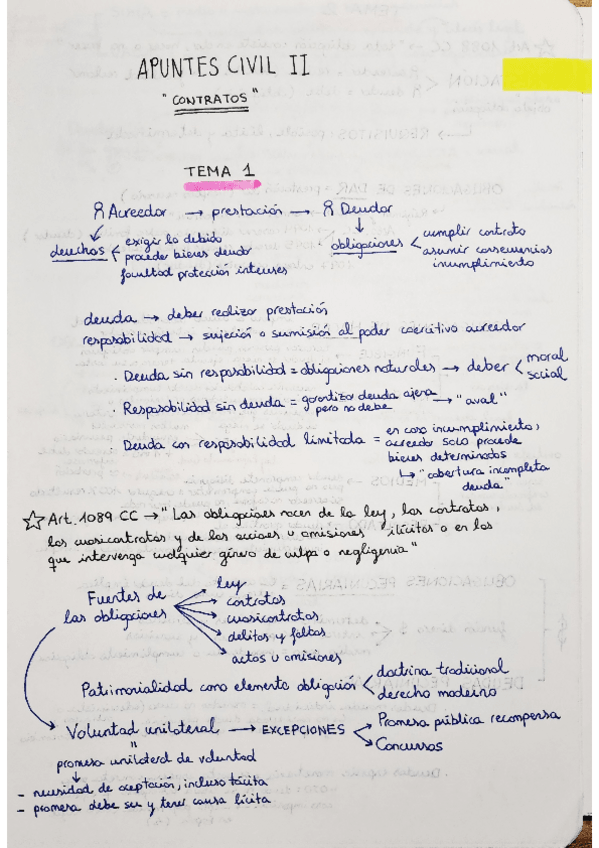 APUNTES CIVIL II
"CONTRATOS"
TEMA 1
Acreedor → prestación → Deudor
derechos
exigir lo debido
proceder bienes deudor
facultad protección intereses
obligaciones
cumplir contrato
asumir consecuencias
incumplimiento
deuda → deber realizar prestación
resposabilidad → sujeción o sumisión al poder coercitivo acreedor
· Deuda sin resposabilidad = obligaciones naturales → deber < moral
social
· Resposabilidad sin deuda = garantiza deuda ajena
pero no debe → "aval"
· Deuda con resposabilidad limitada = en caso incumplimiento,
acreedor solo procede
bienes determinados
↳ "cobertura incompleta
deuda"
☆ Art. 1089 CC → "Las obligacioes nacen de la ley, los contratos,
los cuasicontratos y de los accioes u omisiones ilícitos o en los
que intervenga cualquier género de culpa o negligencia"
Fuentes de
las obligaciones
ley
contratos
cuasicontratos
delitos y faltas
actos u omisiones
Patrimonialidad como elemento obligación < doctrina tradicional
derecho moderno
Voluntad unilateral → EXCEPCIONES
Promesa pública recompensa
Concursos
"
promesa unilateral de voluntad
- necesidad de aceptación, incluso tácita
- promesa debe ser y tener causa lícita